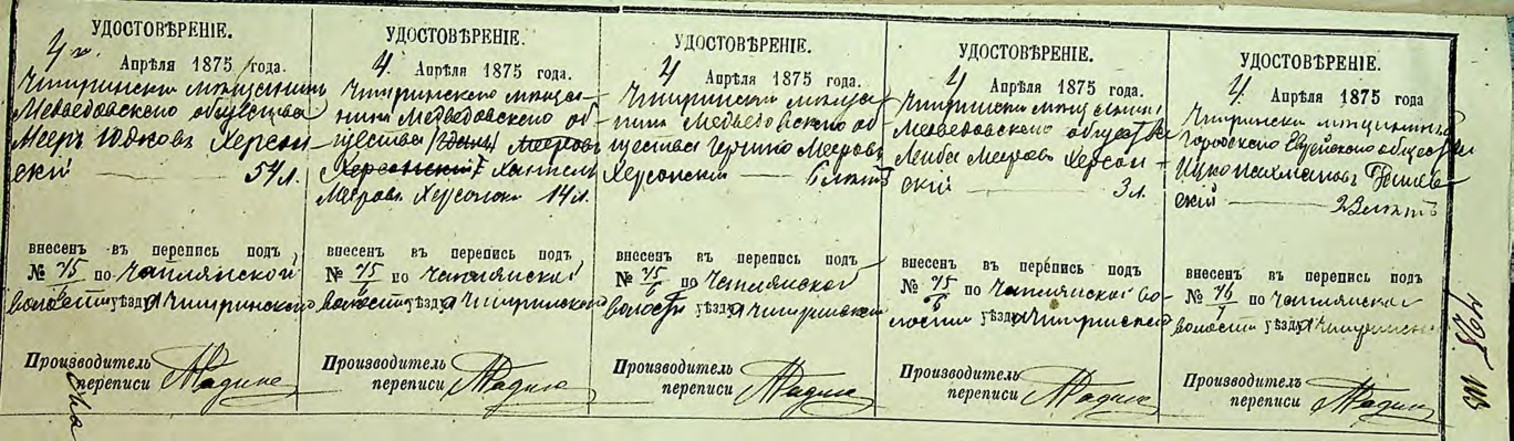 УДОСТОВѢРЕНІЕ.
4го Апрѣля 1875 года.
Чигиринскій мѣщанинъ
Медведовскаго общества
Мееръ Юдковъ Херсон
скій — 54 л.
внесенъ въ перепись подъ
№ 75/6 по Чаплянской
волости уѣзда Чигиринскаго
Производитель
переписи
УДОСТОВѢРЕНІЕ.
4. Апрѣля 1875 года.
Чигиринскаго мѣща-
нинъ Медведовскаго об-
щества Мееровъ
Херсонскій
Мееровъ Херсонскій 14 л.
внесенъ въ перепись подъ
№ 75/6 по Чаплянской
волости уѣзда Чигиринскаго
Производитель
переписи
УДОСТОВѢРЕНІЕ.
4 Апрѣля 1875 года.
Чигиринскій мѣща
нинъ Медведовскаго об-
щества Мееровъ
Херсонскій — 6 лѣтъ
внесенъ въ перепись подъ
№ 75/6 по Чаплянской
волости уѣзда Чигиринскаго
Производитель
переписи
УДОСТОВѢРЕНІЕ.
4 Апрѣля 1875 года.
Чигиринскій мѣщанинъ
Медведовскаго общества
Лейба Мееровъ Херсон-
скій — 3 л.
внесенъ въ перепись подъ
№ 75/6 по Чаплянской во-
лости уѣзда Чигиринскаго
Производитель
переписи
УДОСТОВѢРЕНІЕ.
4. Апрѣля 1875 года
Чигиринскій мѣщанинъ
городскаго Еврейскаго общества
Ицко Нахмановъ
скій — 23 лѣтъ
внесенъ въ перепись подъ
№ 76/7 по Чаплянской
волости уѣзда Чигиринскаго
Производитель
переписи